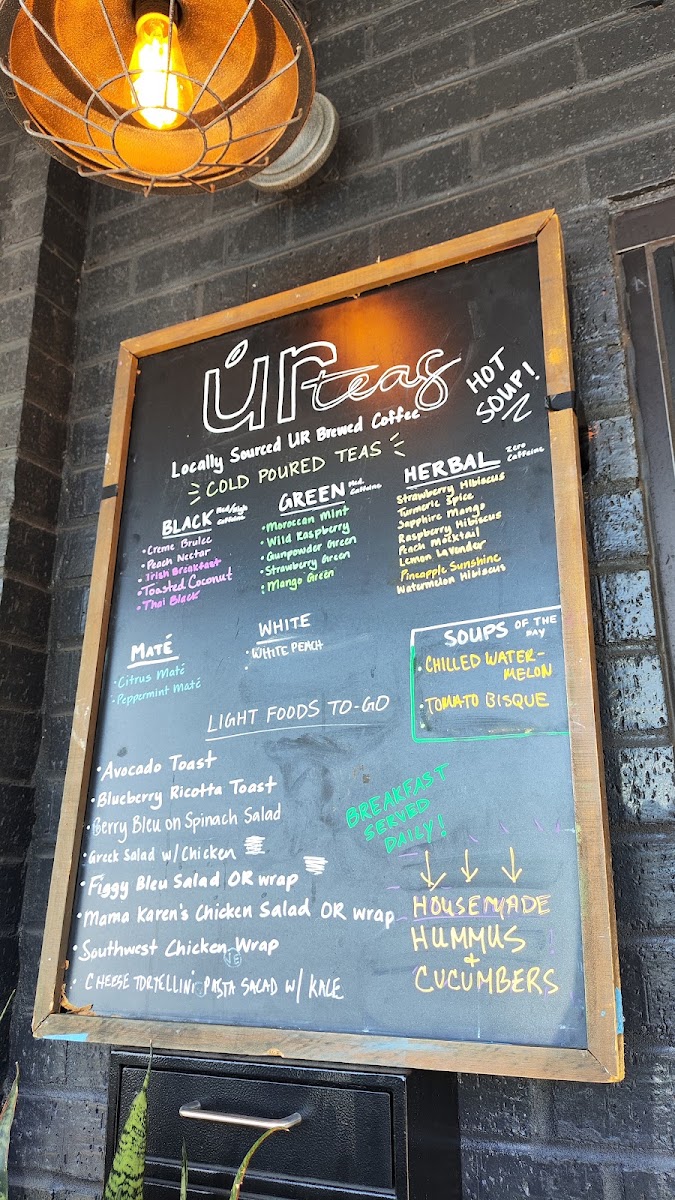 ur teas
HOT
SOUP!
Locally Sourced UR Brewed Coffee
COLD POURED TEAS
BLACK Med/High
Caffeine
• Creme Brulee
• Peach Nectar
• Irish Breakfast
• Toasted Coconut
• Thai Black
GREEN Med.
Caffeine
• Moroccan Mint
• Wild Raspberry
• Gunpowder Green
• Strawberry Green
• Mango Green
HERBAL Zero
Caffeine
Strawberry Hibiscus
Turmeric Spice
Sapphire Mango
Raspberry Hibiscus
Peach Mocktail
Lemon Lavender
Pineapple Sunshine
Watermelon Hibiscus
MATÉ
• Citrus Maté
• Peppermint Maté
WHITE
• WHITE PEACH
SOUPS OF THE
DAY
• CHILLED WATER-
MELON
• TOMATO BISQUE
LIGHT FOODS TO-GO
• Avocado Toast
• Blueberry Ricotta Toast
• Berry Bleu on Spinach Salad
• Greek Salad w/ Chicken
• Figgy Bleu Salad OR wrap
• Mama Karen's Chicken Salad OR wrap
• Southwest Chicken Wrap
• CHEESE TORTELLINI PASTA SALAD W/ KALE
BREAKFAST
SERVED
DAILY!
HOUSEMADE
HUMMUS
+
CUCUMBERS